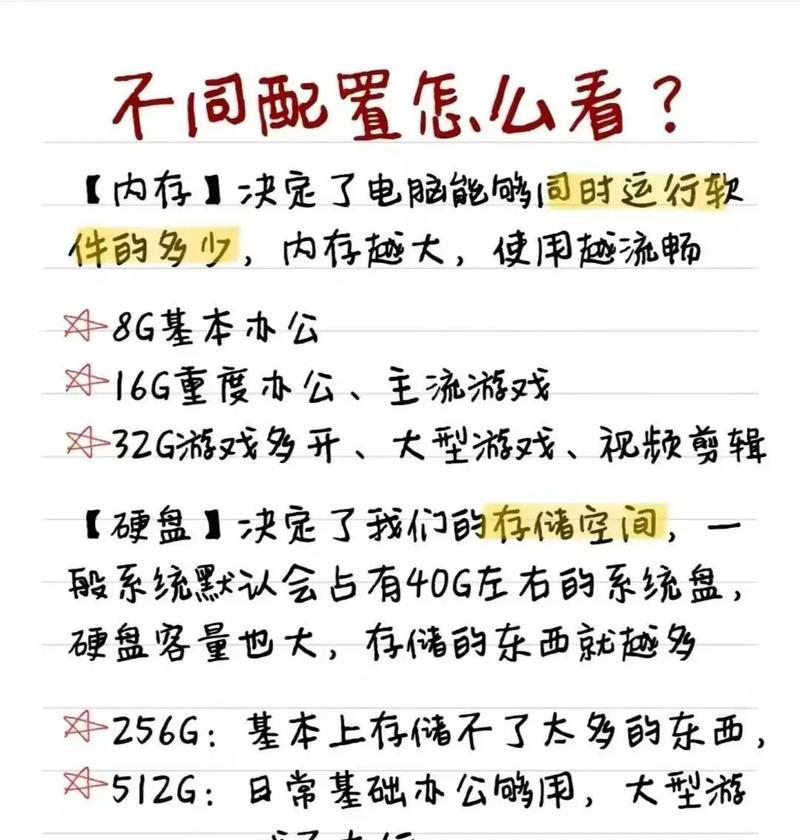 不同配置怎么看?
【内存】决定了电脑能够同时运行软
件的多少，内存越大，使用越流畅
8G基本办公
16G重度办公、主流游戏
32G游戏多开、大型游戏、视频剪辑
【硬盘】决定了我们的存储空间，一
般系统默认会占有40G左右的系统盘，
硬盘容量也大，存储的东西就越多
256G：基本上存储不了太多的东西，
512G：日常基础办公够用，大型游